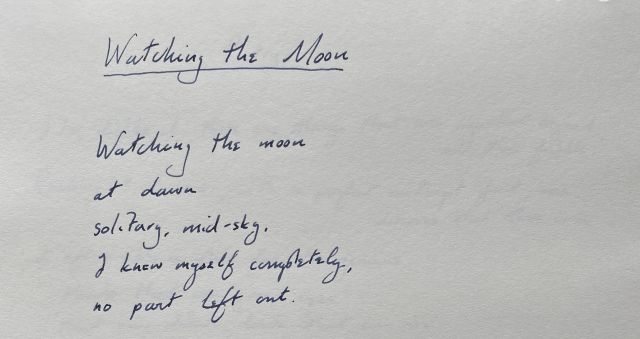 Watching the Moon
Watching the moon
at dawn
solitary, mid-sky,
I knew myself completely,
no part left out.